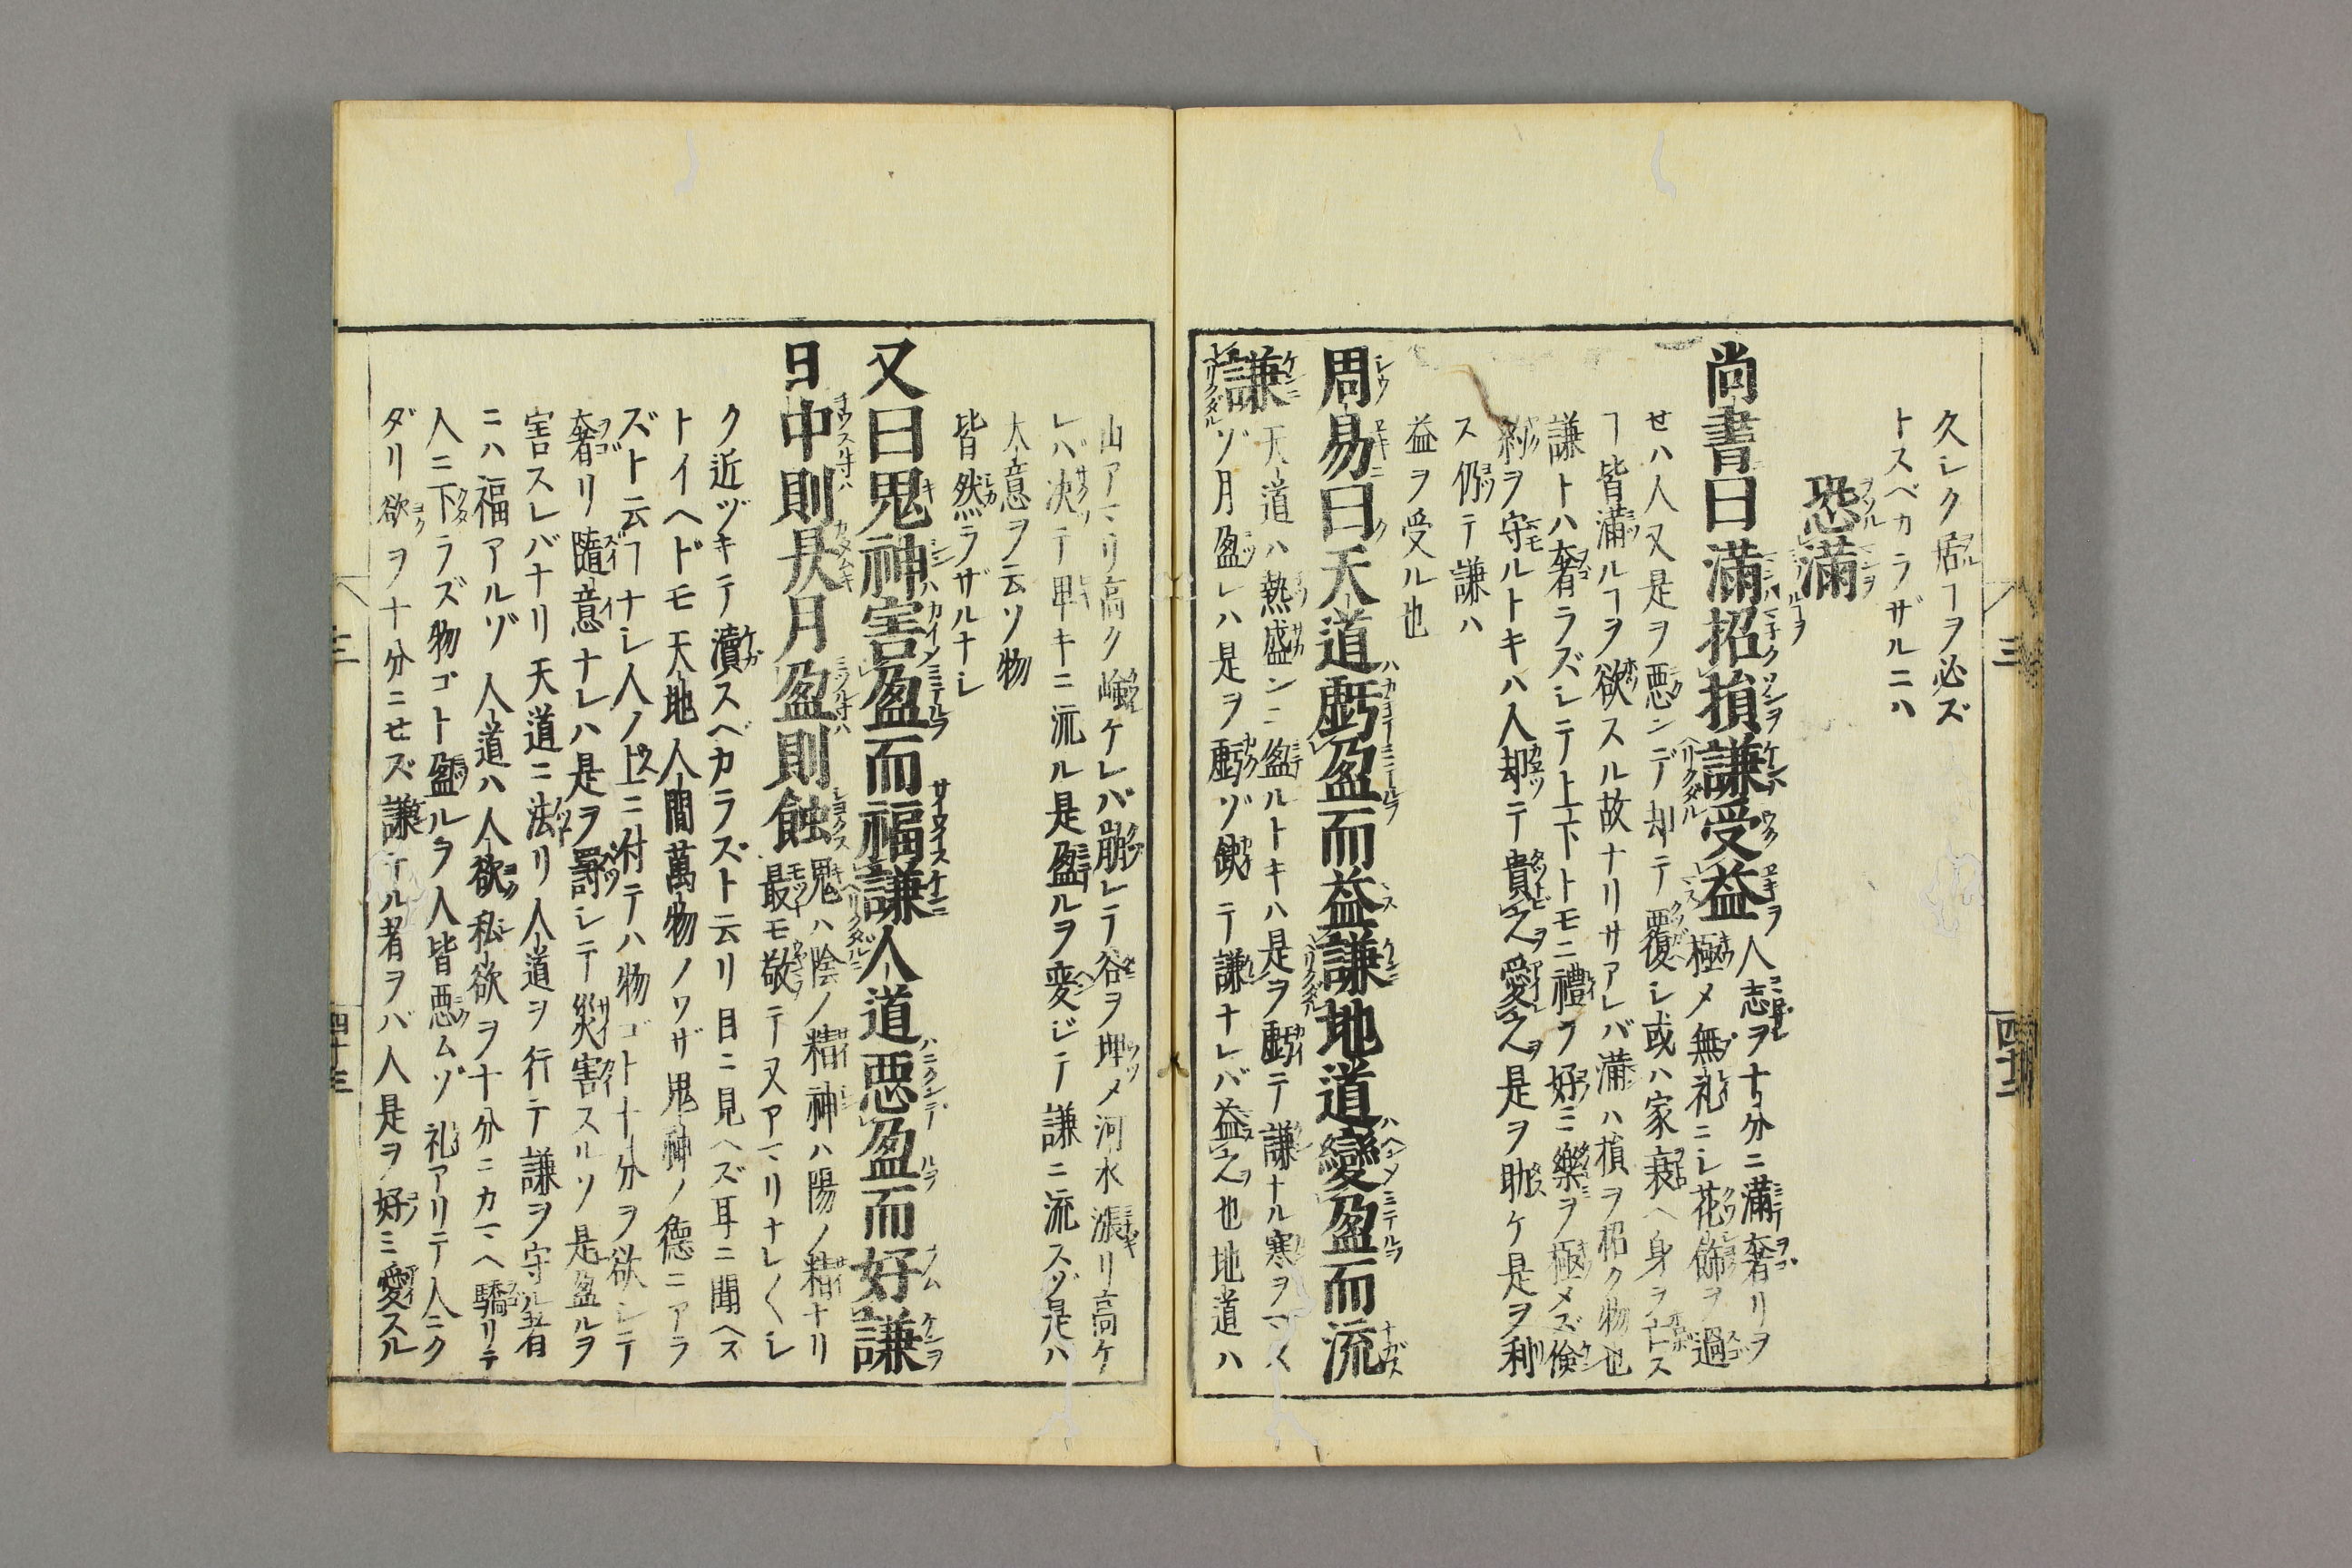 久シク居ルヿヲ必ズ
トスベカラザルニハ
恐滿
尚書曰滿招損謙受益人志ヲ十分ニ滿奢リヲ
極メ無礼ニシ花飾ヲ過
セハ人又是ヲ悪ンデ却テ覆シ或ハ家衰ヘ身ヲ亡ス
ヿ皆滿ルヿヲ欲スル故ナリサアレバ滿ハ損ヲ招ク物也
謙トハ奢ラズシテ上下トモニ禮ヲ好ミ樂ヲ極メズ儉
約ヲ守ルトキハ人却テ貴之愛之是ヲ助ケ是ヲ利
ス仍テ謙ハ
益ヲ受ル也
周易曰天道虧盈而益謙地道變盈而流
謙天道ハ熱盛ンニ盈ルトキハ是ヲ虧テ謙ナル寒ヲマ子ク
ゾ月盈レハ是ヲ虧ゾ缺テ謙ナレバ益之也地道ハ
山アマリ高ク嶮ケレバ崩レテ谷ヲ埋メ河水漲リ高ケ
レバ決テ卑キニ流ル是盈ルヲ変ジテ謙ニ流スゾ是ハ
大意ヲ云ソ物
皆然ラザルナシ
又曰鬼神害盈而福謙人道惡盈而好謙
日中則昃月盈則蝕鬼ハ陰ノ精神ハ陽ノ精ナリ
最モ敬テ又アマリナレ〱シ
ク近ヅキテ瀆スベカラズト云リ目ニ見ヘズ耳ニ聞ヘス
トイヘドモ天地人間萬物ノワザ鬼神ノ德ニアラ
ズト云ヿナシ人ノ上ニ付テハ物ゴト十分ヲ欲シテ
奢リ隨意ナレハ是ヲ罸シテ災害スルソ是盈ルヲ
害スレバナリ天道ニ法リ人道ヲ行テ謙ヲ守ル者
ニハ福アルゾ人道ハ人欲私欲ヲ十分ニカマヘ驕リテ
人ニ下ラズ物ゴト盈ルヲ人皆悪ムゾ礼アリテ人ニク
ダリ欲ヲ十分ニセズ謙ケル者ヲバ人是ヲ好ミ愛スル